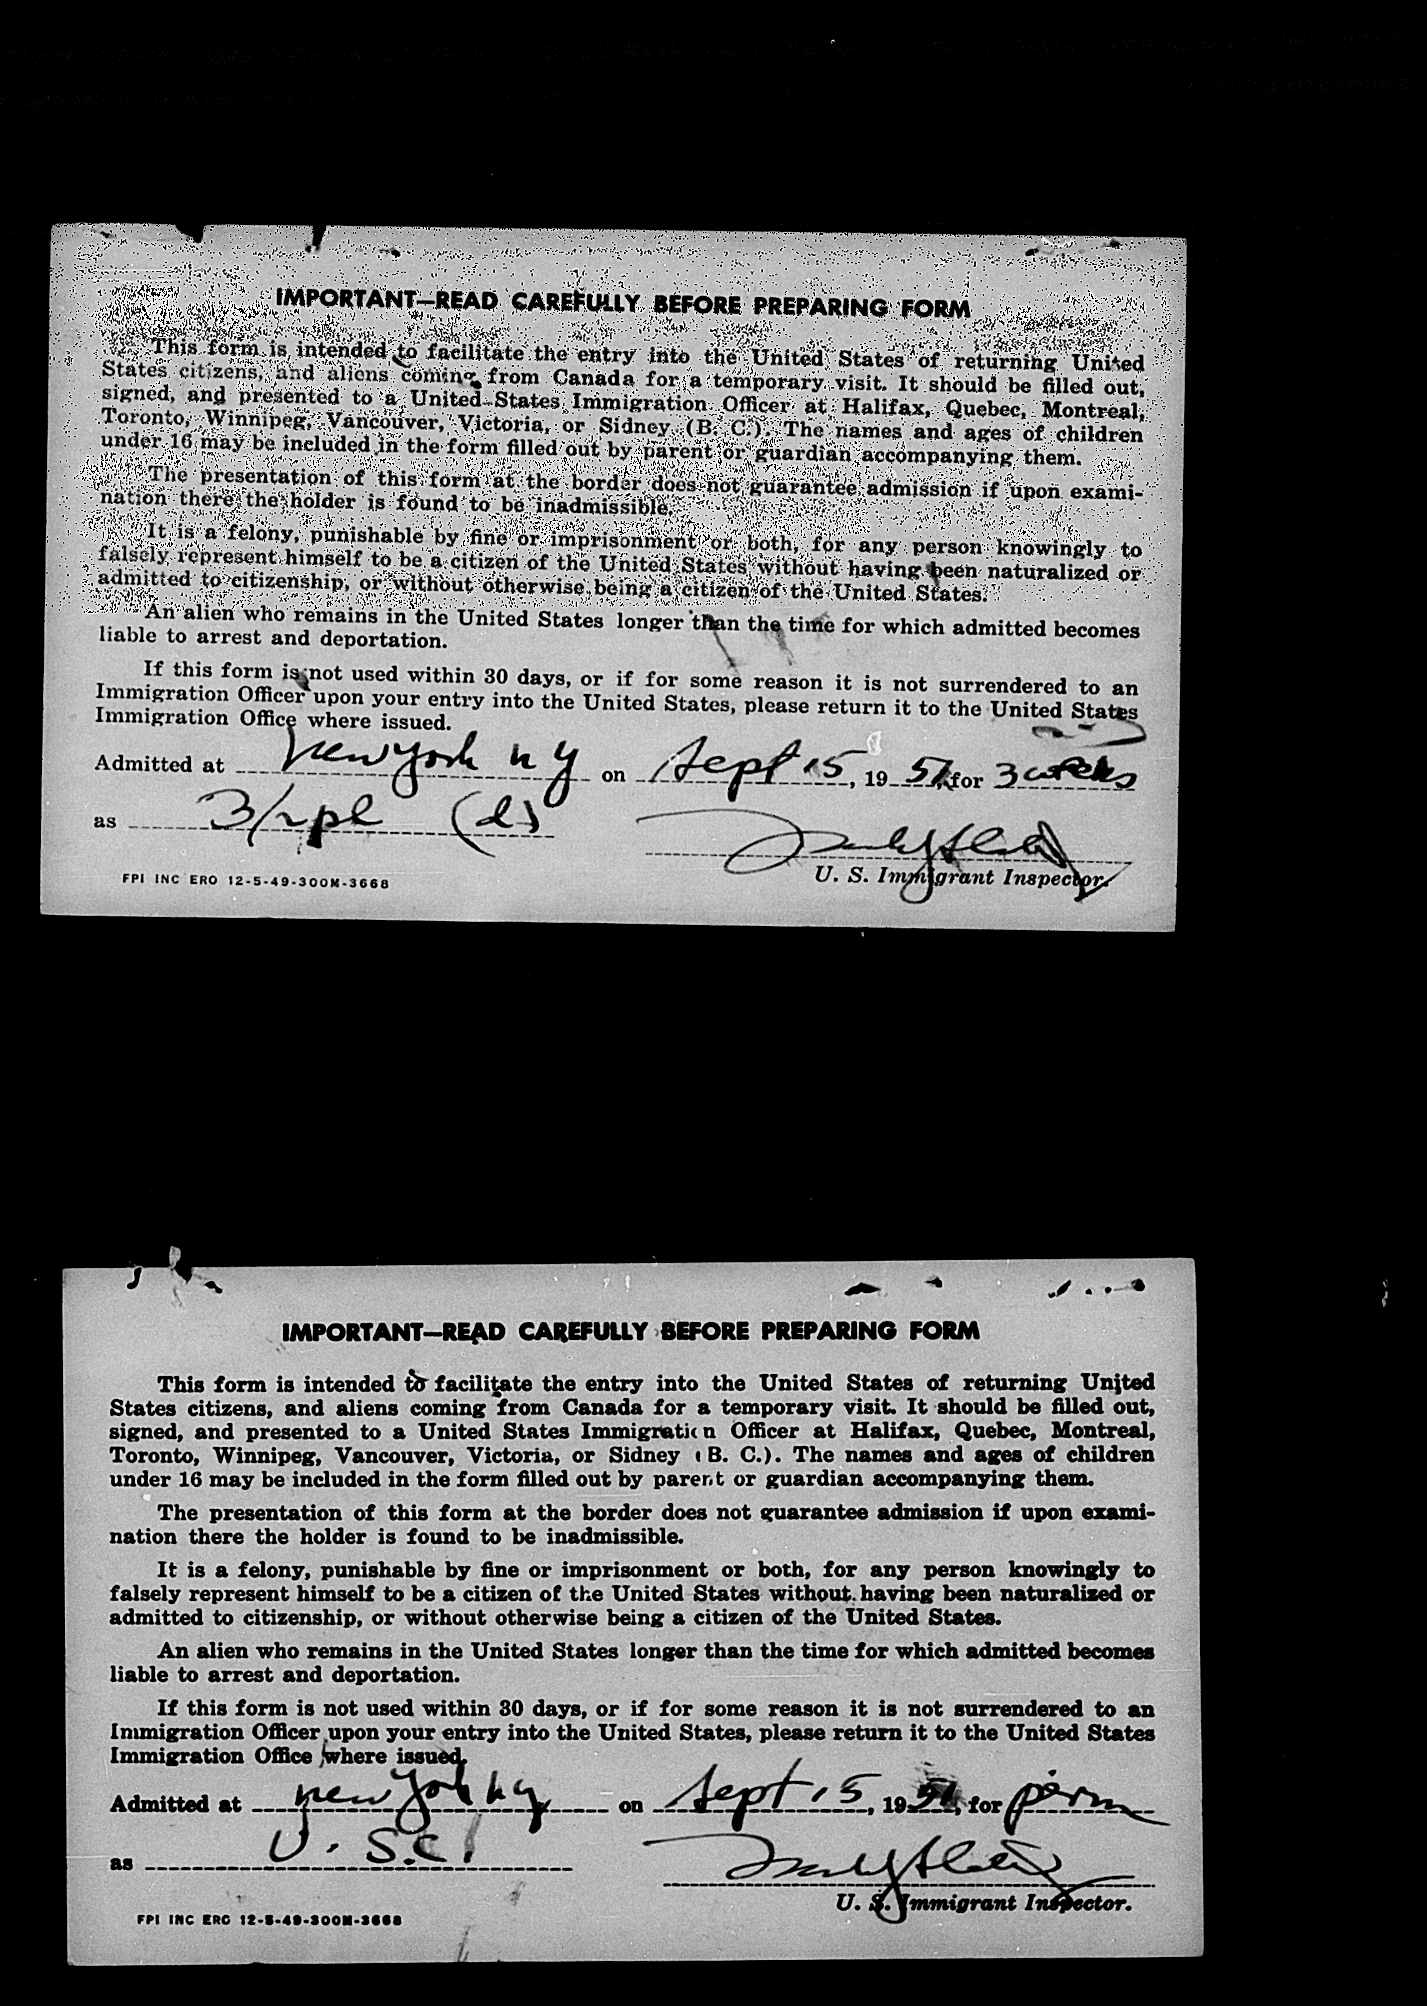 IMPORTANT—READ CAREFULLY BEFORE PREPARING FORM
This form is intended to facilitate the entry into the United States of returning United
States citizens, and aliens coming from Canada for a temporary visit. It should be filled out,
signed, and presented to a United States Immigration Officer at Halifax, Quebec, Montreal,
Toronto, Winnipeg, Vancouver, Victoria, or Sidney (B. C.). The names and ages of children
under 16 may be included in the form filled out by parent or guardian accompanying them.
The presentation of this form at the border does not guarantee admission if upon exami-
nation there the holder is found to be inadmissible.
It is a felony, punishable by fine or imprisonment or both, for any person knowingly to
falsely represent himself to be a citizen of the United States without having been naturalized or
admitted to citizenship, or without otherwise being a citizen of the United States.
An alien who remains in the United States longer than the time for which admitted becomes
liable to arrest and deportation.
If this form is not used within 30 days, or if for some reason it is not surrendered to an
Immigration Officer upon your entry into the United States, please return it to the United States
Immigration Office where issued.
Admitted at New York N Y on Sept 15, 1951, for 3 weeks
as 3/2 pl (d)
U. S. Immigrant Inspector.
FPI INC ERO 12-5-49-300M-3668
IMPORTANT—READ CAREFULLY BEFORE PREPARING FORM
This form is intended to facilitate the entry into the United States of returning United
States citizens, and aliens coming from Canada for a temporary visit. It should be filled out,
signed, and presented to a United States Immigration Officer at Halifax, Quebec, Montreal,
Toronto, Winnipeg, Vancouver, Victoria, or Sidney (B. C.). The names and ages of children
under 16 may be included in the form filled out by parent or guardian accompanying them.
The presentation of this form at the border does not guarantee admission if upon exami-
nation there the holder is found to be inadmissible.
It is a felony, punishable by fine or imprisonment or both, for any person knowingly to
falsely represent himself to be a citizen of the United States without having been naturalized or
admitted to citizenship, or without otherwise being a citizen of the United States.
An alien who remains in the United States longer than the time for which admitted becomes
liable to arrest and deportation.
If this form is not used within 30 days, or if for some reason it is not surrendered to an
Immigration Officer upon your entry into the United States, please return it to the United States
Immigration Office where issued.
Admitted at New York N Y on Sept 15, 1951, for perm
as U. S. C.
U. S. Immigrant Inspector.
FPI INC ERO 12-5-49-300M-3668